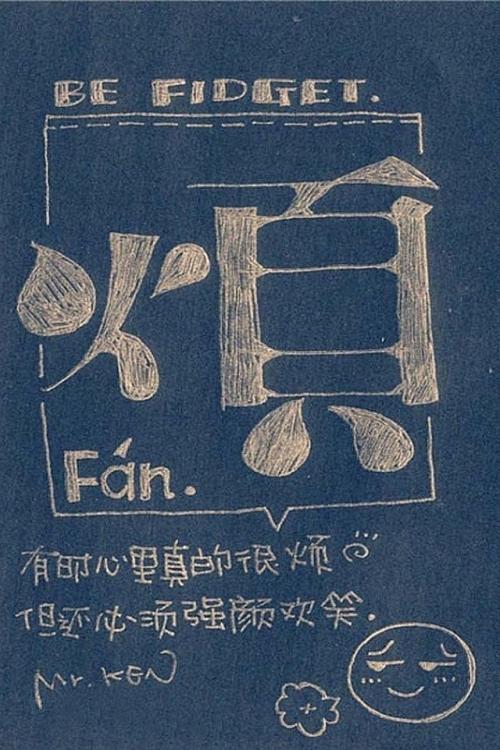 BE FIDGET.
煩
Fán.
有时心里真的很烦
但还必须强颜欢笑.
Mr. KEN